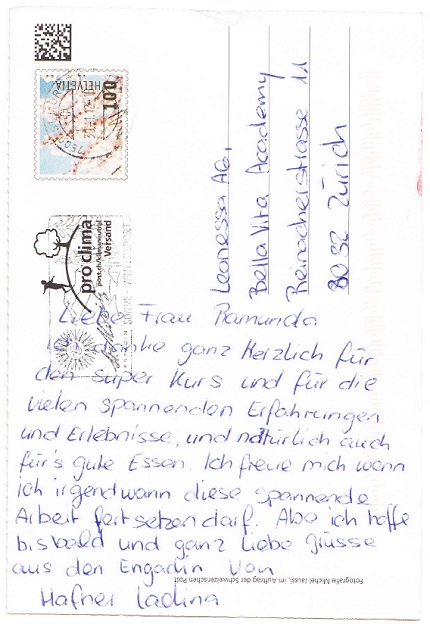 HELVETIA
100
pro clima
post.ch/klimaneutral
Versand
SONNE WINTERSPORT
Leonessa AG,
Bella Vita Academy
Reinacherstrasse 11
8032 Zürich
Liebe Frau Ramunda
Ich danke ganz Herzlich für
den super Kurs und für die
vielen spannenden Erfahrungen
und Erlebnisse, und natürlich auch
für's gute Essen. Ich freue mich wenn
ich irgendwann diese spannende
Arbeit fortsetzen darf. Also ich hoffe
bis bald und ganz Liebe grüsse
aus den Engadin von
Hafner Ladina
Fotografie Michel Jaussi, im Auftrag der Schweizerischen Post